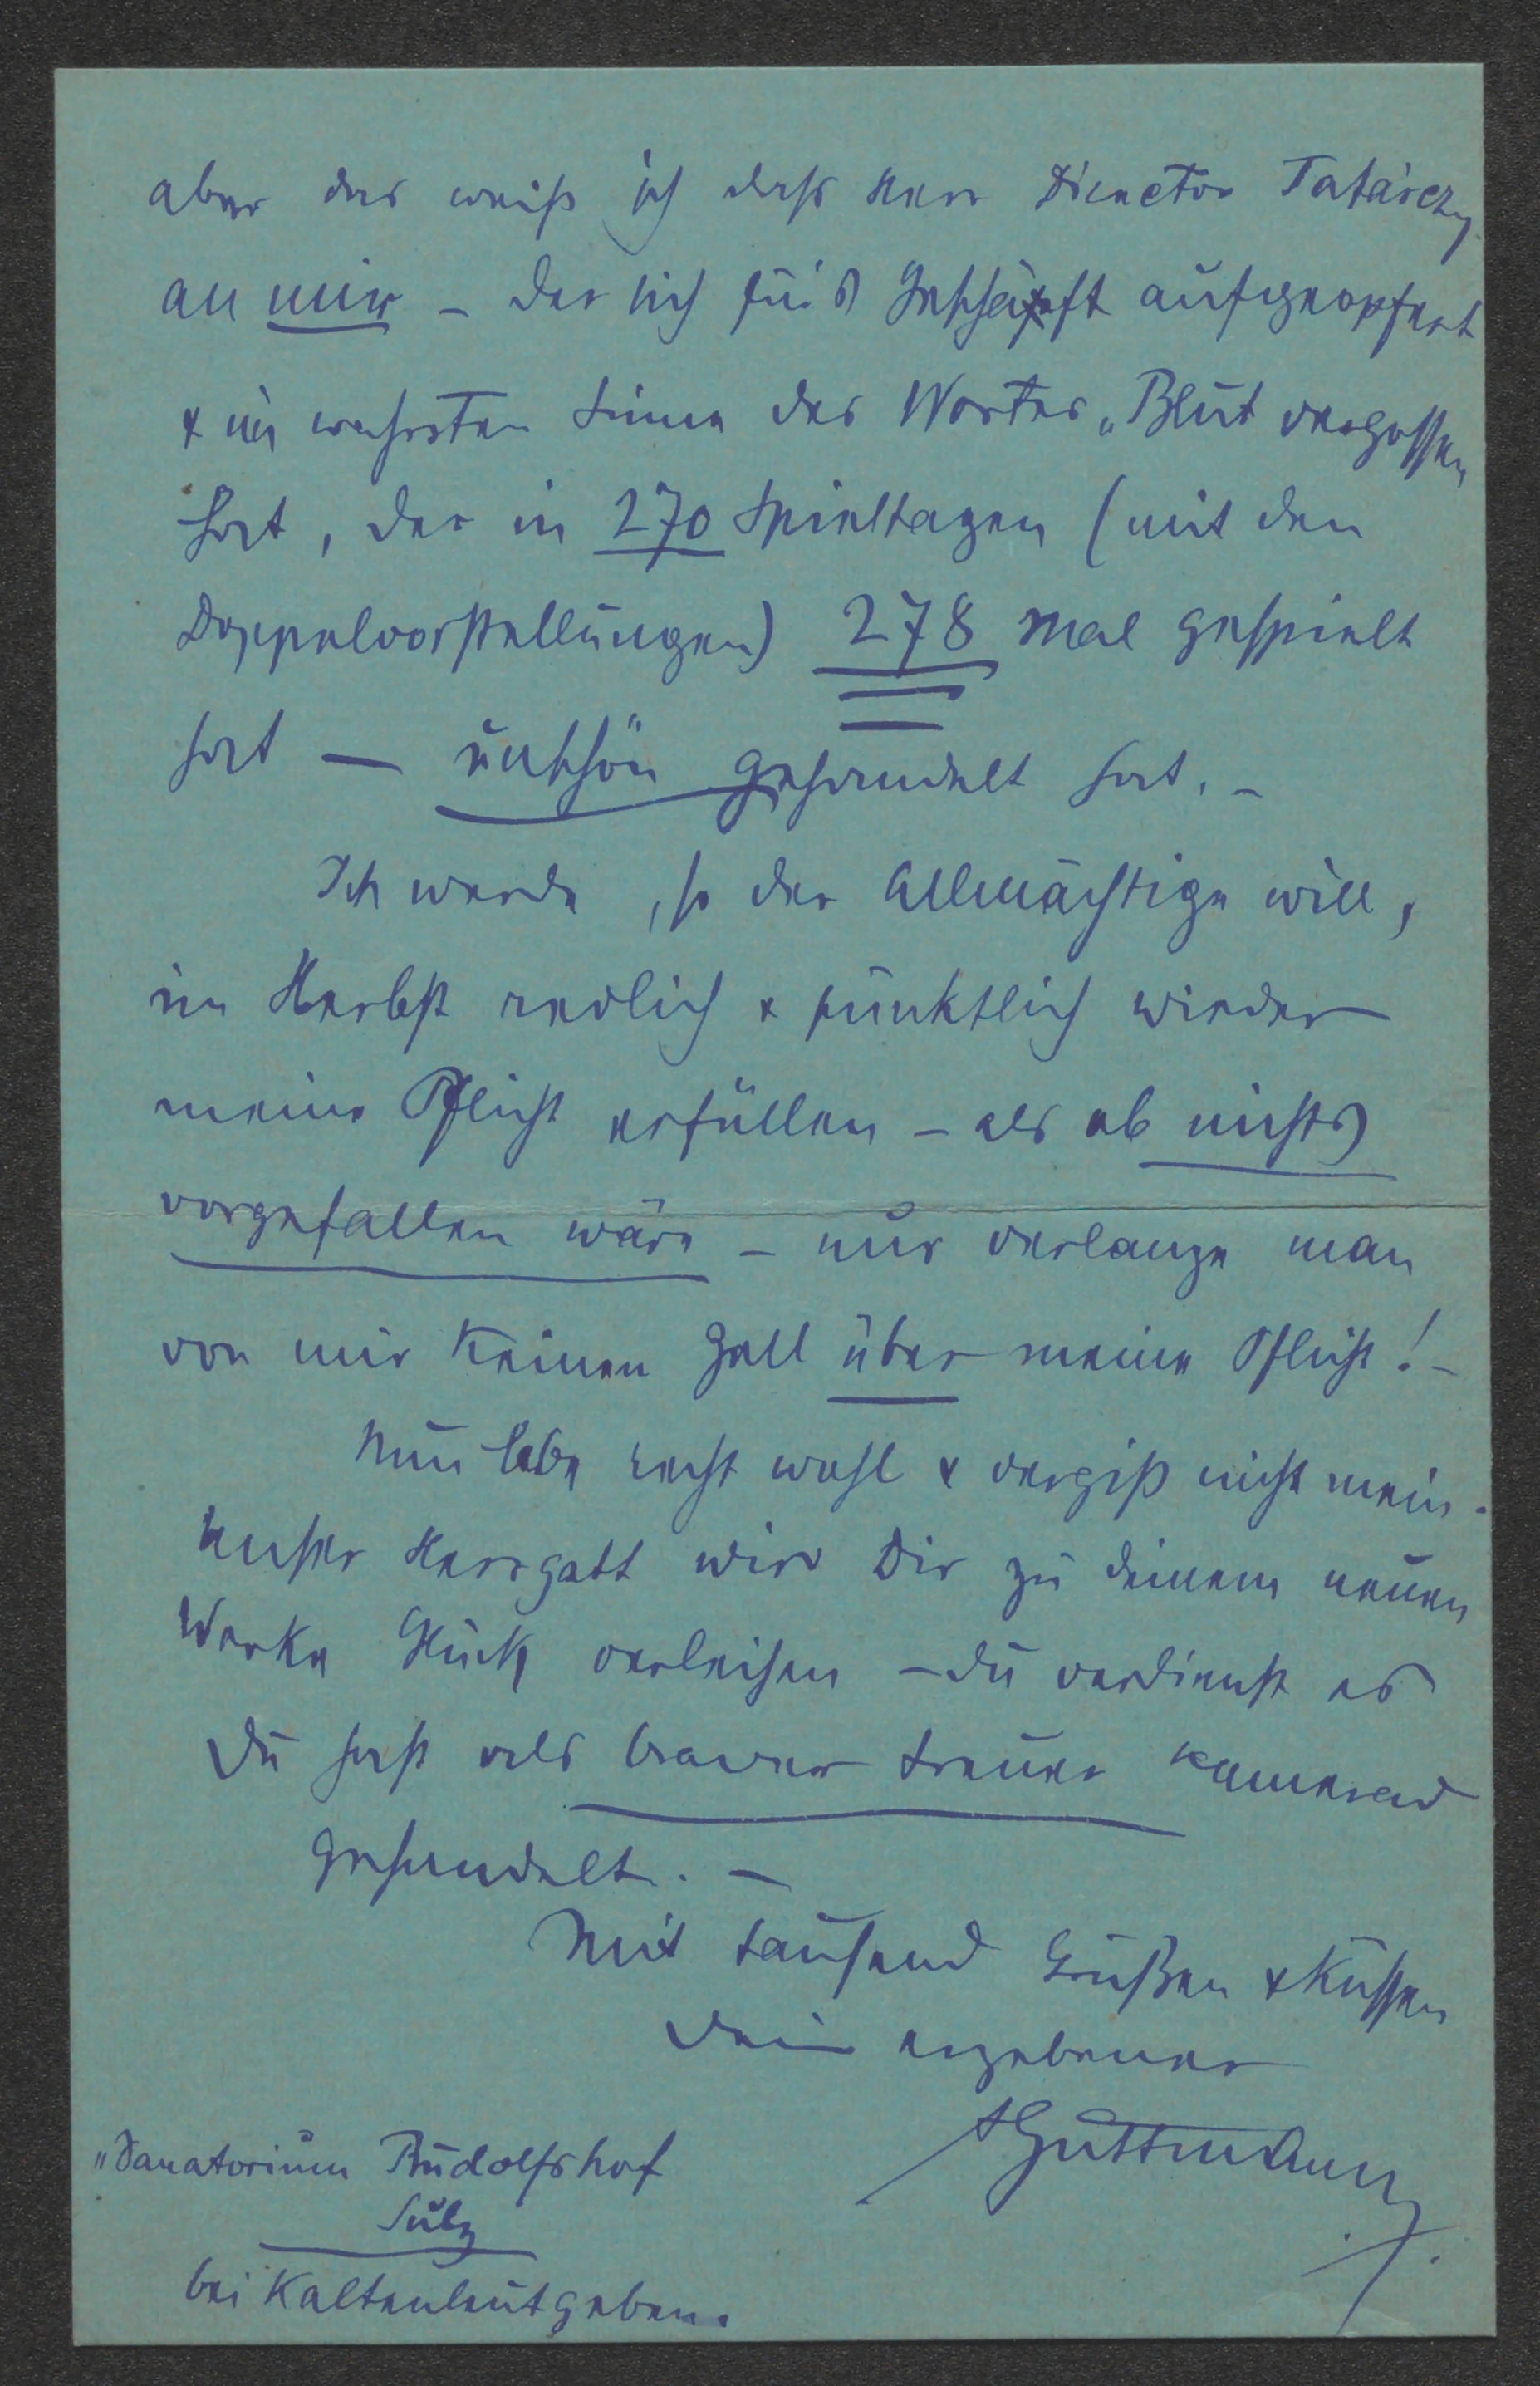 aber das weiß ich daß Herr Director Tatárczy
an mir – der sich für's Geschäft aufgeopfert
& im wahrsten Sinne des Wortes „Blut vergossen
hat, der in 270 Spieltagen (mit den
Doppelvorstellungen) 278 mal gespielt
hat – unschön gehandelt hat. –
Ich werde, so der Allmächtige will,
im Herbst redlich & pünktlich wieder
meine Pflicht erfüllen – als ob nichts
vorgefallen wäre – nur verlange man
von mir keinen Zoll über meine Pflicht! –
Nun lebe recht wohl & vergiß nicht mein.
Unser Herrgott wird Dir zu deinem neuen
Werke Glück verleihen – du verdienst es
Du hast als braver treuer Kamerad
gehandelt. –
Mit tausend Grüßen & Küssen
dein ergebener
Guttmann
„Sanatorium Rudolfshof
Sulz
bei Kaltenleutgeben.